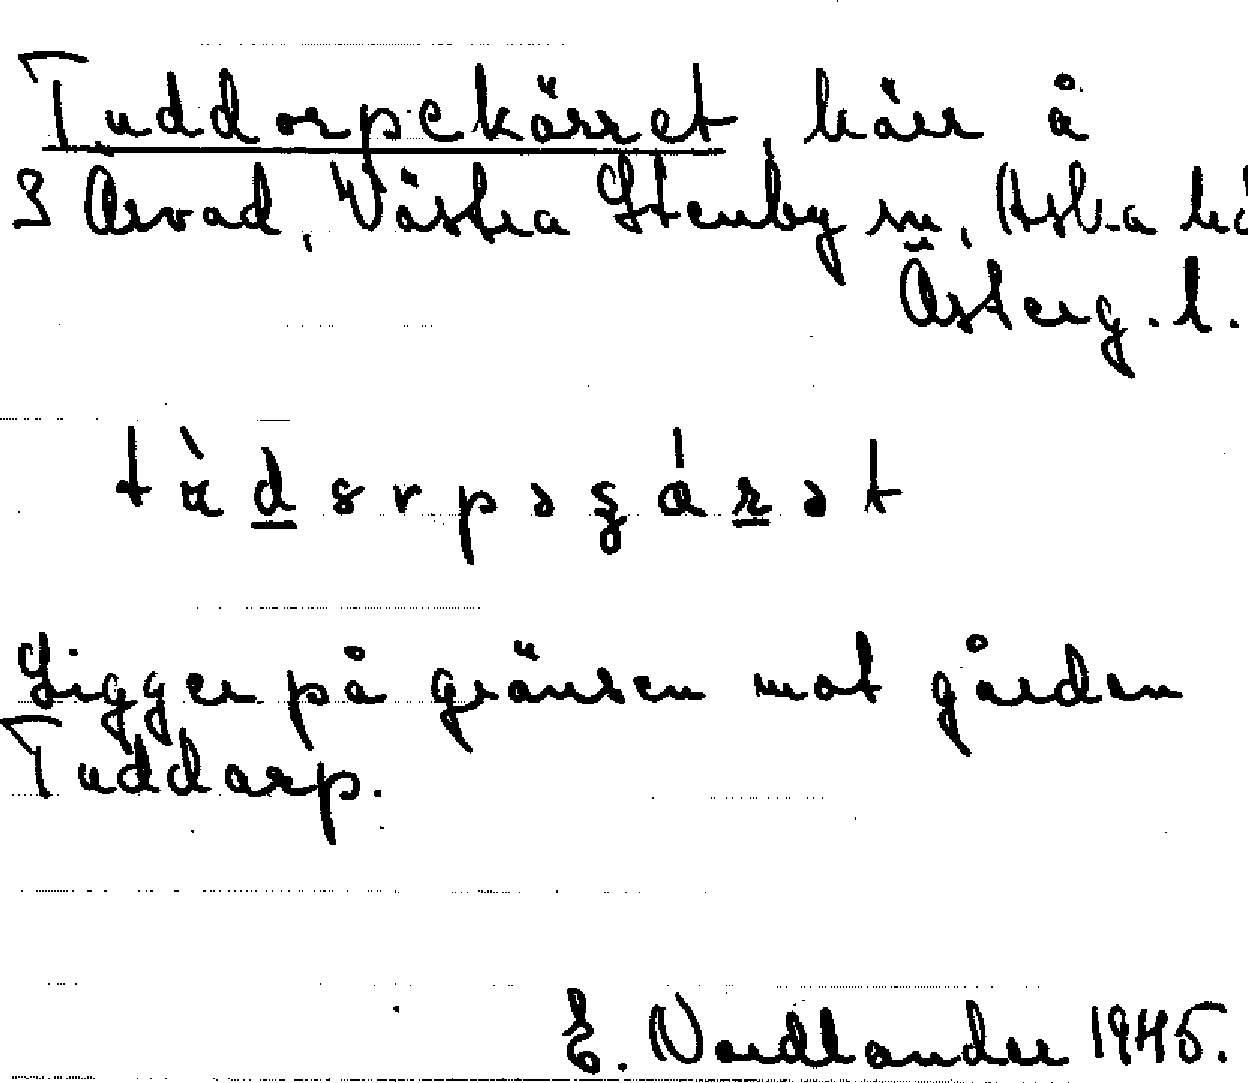 Tuddorpekärret, kärr å
3 Arvad, Västra Stenby sn, Aska hd
Österg. l.
Ligger på gränsen mot gården
Tuddarp.
E. Nordlander 1945.